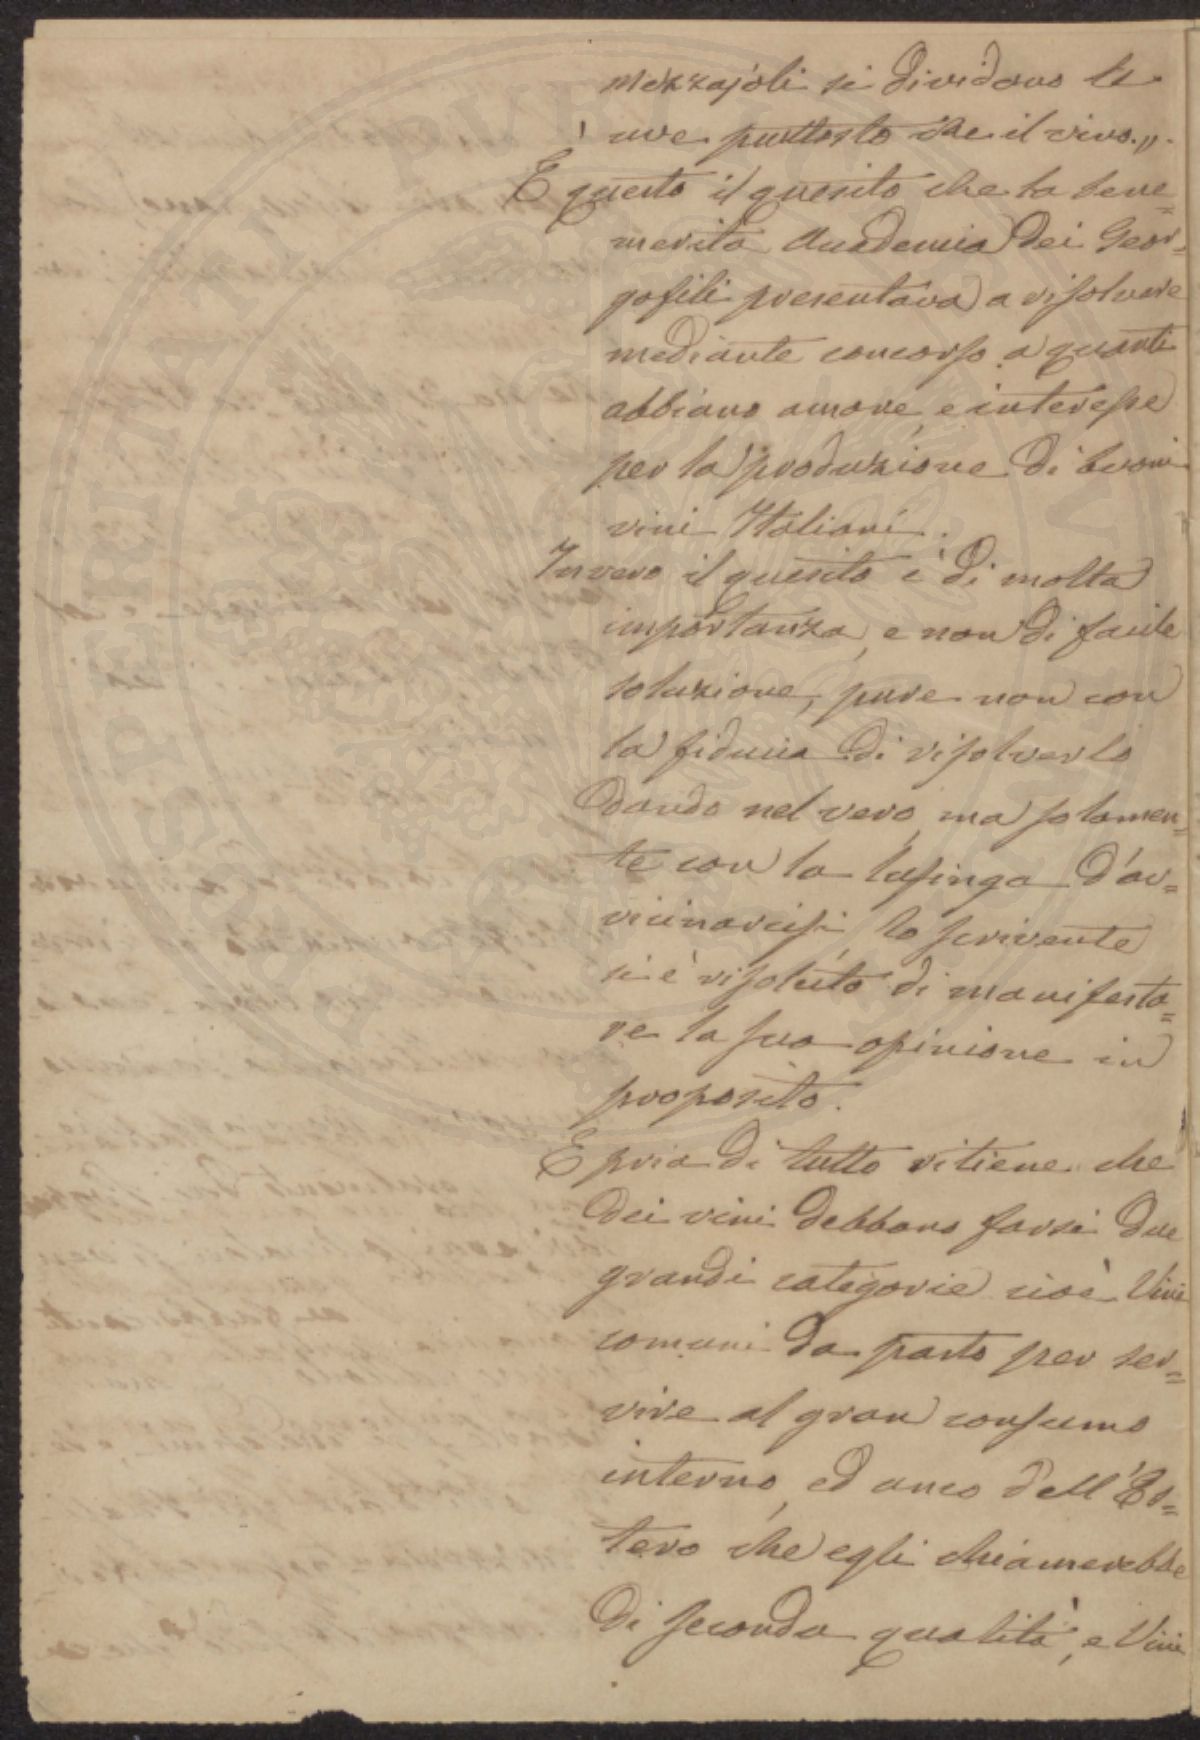 mezzajoli si dividono le
uve puttosto che il vino.„.
È questo il quesito che la bene=
merita Accademia Dei Geor=
gofili presentava a risolvere
mediante concorso a quanti
abbiano amore, e interesse
per la produzione di buoni
vini Italiani.
Invero il quesito è di molta
importanza, e non di facile
soluzione, pure non con
la fiducia di risolverlo
dando nel vero, ma solamen=
te con la lusinga d'av=
vicinarcisi, lo scrivente
si è risoluto di manifesta=
re la sua opinione in
proposito.
E pria di tutto ritiene che
dei vini debbono farsi due
grandi categorie cioè Vini
comuni da pasto per ser=
vire al gran consumo
interno, ed anco dell'Es=
tero che egli chiamerebbe
di seconda qualità, e Vini
PROSPERITATI PUBLICAE